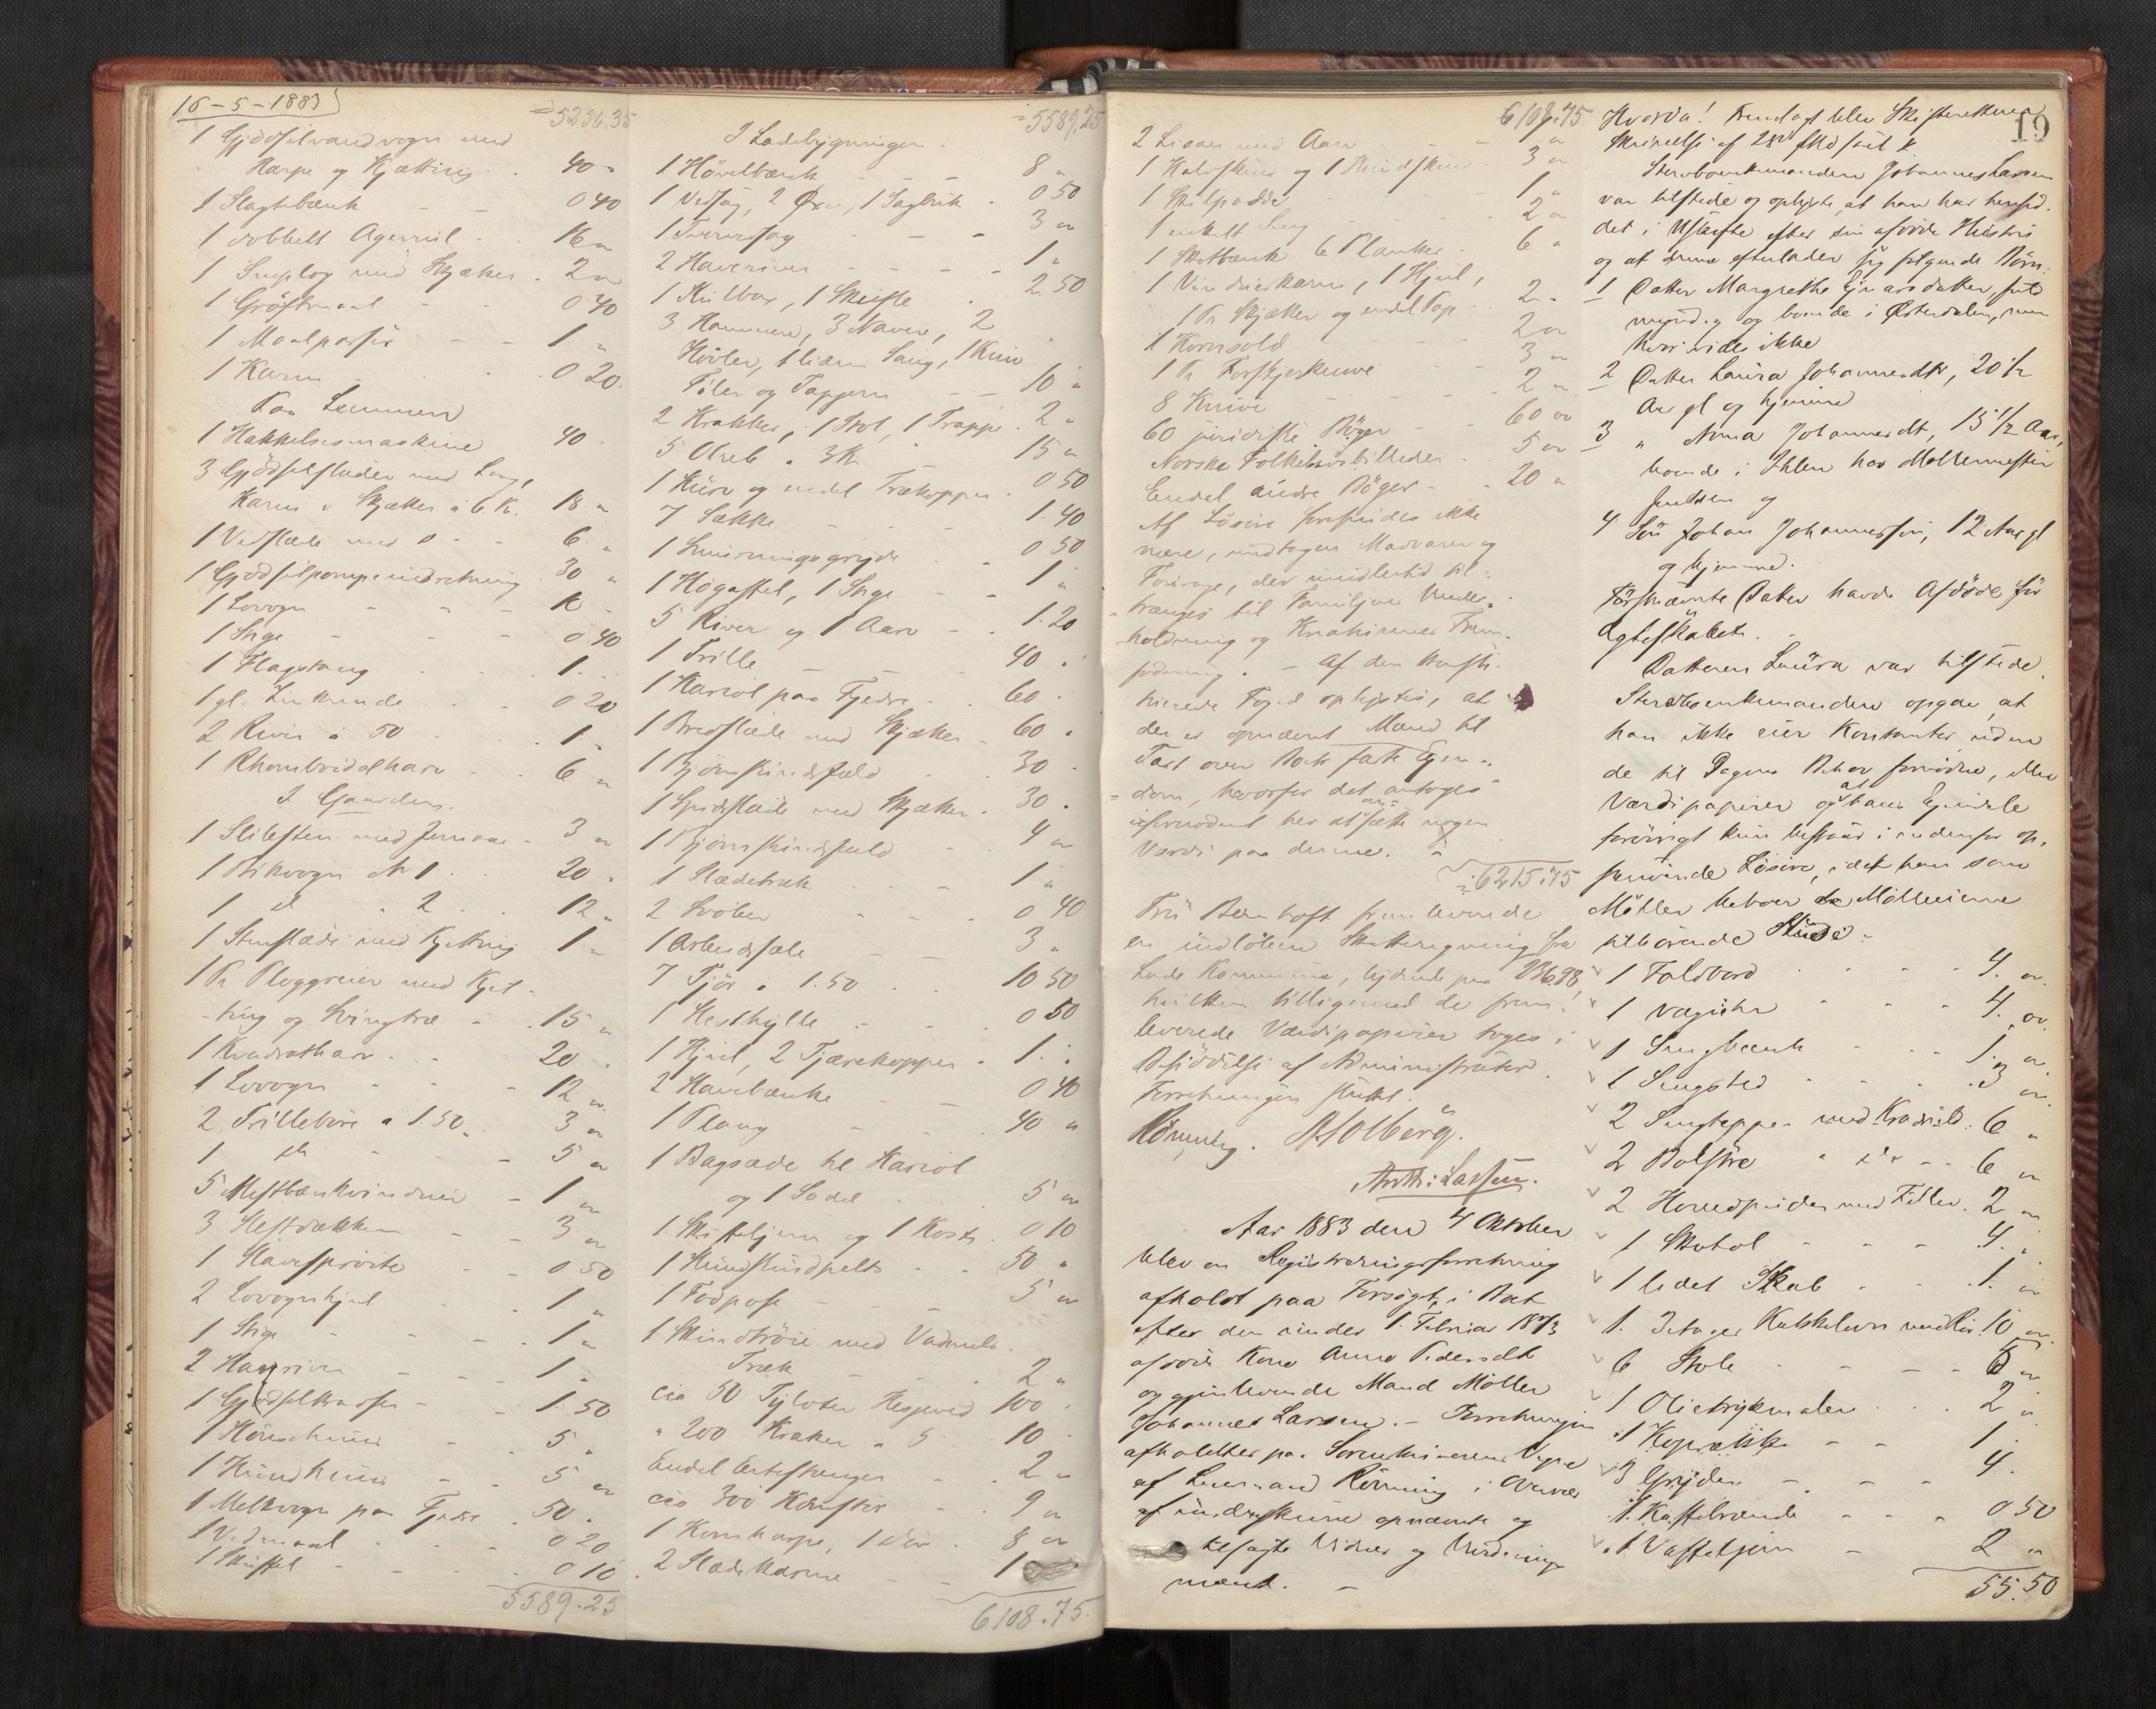 16-5-1883
5256.35
1 Gjødselvandvogn med
Karpe og Kjætting . . 40 "
1 Slagtebænk - - 0 40
1 dobbelt - - 16 "
1 Sneplog med Skjæker . 2 "
1 Grøftmaal - - 0 40
1 Maalpasser - - 1 "
1 Karm . . . 0 20
Paa Lemmen
1 Hakkelsesmaskine 40 -
3 Gjødselslæder med Lang,
Karm & Skjæker a 6 Kr. 18 "
1 Vedslæde med do - - 6 "
1 Gjødselpompeindretning . 30 "
1 Lovogn - - -
1 Stige - - - 0 40
1 Flagstang . . . 1 .
1 gl. - - 0 20
2 River a 50 . . 1 "
1 Rhomboidalharv - - 6 "
I Gaarden.
1 Slibesten med Jernaas - 3 "
1 Arbkvogn No 1 . . 20 .
1 do " 2 . . . 12 "
1 Stenslæde med Kjetting 1 "
1 Pr Ploggreier med Kjet-
ting og Svingtræ - . 15 "
1 Kvadratharv . . . 20 .
1 Lovogn - - - 12 "
2 Trillebøre a 1.50 - 3 "
1 do - - - 5 "
5 - 1 "
3 Hestdækken - - 3 "
1 Havesprøite - - 0 50
2 Lovognhjul - . . 1 "
1 Stige - - - - 1 "
2 Haveriver - - - 1 "
1 Gjødselkasser - - 1.50
1 Hønsehuus - - 5 "
1 Hundehuus - - 5 "
1 Melkvogn paa Fjedre . 50 .
1 Vedmaal . . . 0 20
1 Skuffel - - - 0 10
5589.25
5589.25
I Ladebygningen.
1 Høvelbænk - - - 8 "
1 Vedsag, 2 Øxer, 1 . 0 50
1 Tværsag - - - 3 "
2 Haveriver - - - 1 "
1 Kulbox, 1 . 2.50
3 Hammere, 3 Navere, 2
Høvler, 1 liden Saug, 1 Kniv
Filer og - - 10 "
2 Krakker, 1 Stol, 1 Trappe . 2 "
5 a 3 Kr - 15 "
1 Kurv og endel Trækopper . 0 50
7 Sække - - - 1.40
1 Smøringsgryde . . 0 50
1 Høgaffel, 1 Stige - - 1 "
5 River og 1 Aare - . 1.20
1 Trille - - - 40 "
1 Kariol paa Fjedre . . 60 .
1 Bredslæde med Skjæker - 60 "
1 Bjørnskindsfæld . . 30 .
1 Spidslæde med Skjæker . 30 .
1 Bjørnskindsfæld - - 4 "
1 Slædetræk . . . 1 "
2 Svøber - - - 0 40
1 Arbeidssele - - - 3 "
7 Tjør a 1.50 . . 10 50
1 Hesthylle - - - 0 50
1 Hjul, 2 Tjærekopper . 1 . "
2 Havebænke - - 0 40
1 Plaug - - - 40 "
1 Bagsæde til Kariol
og 1 Sadel . . 5 "
1 og 1 Kost . 0 10
1 Hundskindpelts - - 50 "
1 Fodpose - - - 5 "
1 Skindtrøie med Vadmels
Træk - - - 2 "
cia 50 Tylvter Hesjeved 100 .
" 200 Kraker a 5 10 .
Endel Ertestenger - - 2 "
cia 300 Kornstør . . 9 "
1 Kornharpe, 1 . 8 "
2 Slædekarme - - 1
6108.75
6108.75
2 Leaaer med Aare - - 1 "
1 Kalvskind og 1 - 3 "
1 Skilpadde - - - 1 "
1 enkelt Seng - - - 2 "
1 Skotbænk 6 Planker - 6 "
1 , 1 Hjul,
1 Pr Skjæker og endel 2 "
1 Kornsold . . . 2 "
1 Pr - - 3 "
8 Knive - - - - 2 "
60 juridiske Bøger - - 60 "
Norske Folkelivsbilleder . . 5 "
Endel andre Bøger - . 20 "
Af Løsøre forefindes ikke
mere, undtagen Madvarer og
Fourage, der imidlertid til-
trænges til Familjens Under-
holdning og Kreaturenes Frem-
fødning. - Af den konsti-
tuerede Foged oplystes, at
der er opnævnt Mænd til
Taxt over Boets faste Eien-
dom, hvorfor det antoges
ufornødent her at ansætte nogen
Værdi paa denne.
6215.75
Fru fremleverede
en indløben Skatteregning fra
Lade Kommune, lydende paa
hvilken tilligemed de frem-
leverede Værdipapirer toges i
Besiddelse af Administrator.
Forretningen sluttet.
Rønning. A Solberg.
Anth: Larsen.
Aar 1883 den 4 Oktober
blev en Registreringsforretning
afholdt paa Forsøgt, i Boet
efter den under 1. Februar 1873
afdøde Kone Anne Pedersdtr
og gjenlevende Mand Møller
Johannes Larsen. - Forretningen
afholdtes paa Sorenskriverens Vegne
af Lensmand Rønning i Overvær
af undertegnede opnævnte og
tilsagte Vidner og Vurderings-
mænd. -
19
Hvorda! Fremlagt blev Skifterettens
Skrivelse af 28de f Md saal. &
Sterboenkemanden Johannes Larsen
var tilstede og oplyste, at han har hensid-
det i Uskifte efter sin afdøde Hustru
og at denne efterlader sig følgende Børn:
1 Datter Margrethe Ejnarsdatter, fuld
myndig og boende i Østerdalen, men
hvor vides ikke
2 Datter Laura Johannesdtr, 20 1/2
Aar gl og hjemme
3 " Anna Johannesdt, 15 1/2 Aar,
boende i Ihlen hos Møllermester
Knudsen og
4 Søn Johan Johannessen, 12 Aar gl
og hjemme.
Førstnævnte Datter havde Afdøde før
Ægteskabet.
Datteren Laura var tilstede.
Sterboenkemanden opgav, at
han ikke eier Kontanter uden
de til Dagens Behov fornødne, eller
Værdipapirer og at hans Eiendele
forøvrigt kun bestaar i nedenfor op-
førende Løsøre, idet han som
Møller beboer de Mølleeierne
tilhørende Huse:
1 Foldbord . . . . 4. "
1 Væguhr - - - 4. "
1 Sengbænk - - - 1. "
1 Sengsted - - - 3 "
2 Sengtepper med : 6 "
2 Bolstre " do - - 6 "
2 Hovedpuder med Filler . 2 "
1 Skatol - - - 4. "
1 lidet Skab - - - 1. "
1. 3 etages Kakkelovn med Rør 10 "
6 Stole - - - - 6 "
1 Olietryksmaleri . . . 2 "
1 - - 1 .
3 Gryder - - - 4 .
1. Kaffebrænde - - - 0 50
1 Vaffeljern - 2 "
55.50